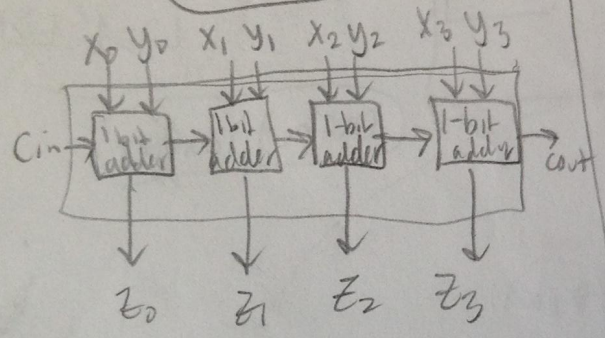 x0 y0 x1 y1 x2 y2 x3 y3
Cin 1bit adder 1bit adder 1-bit adder 1-bit adder cout
z0 z1 z2 z3